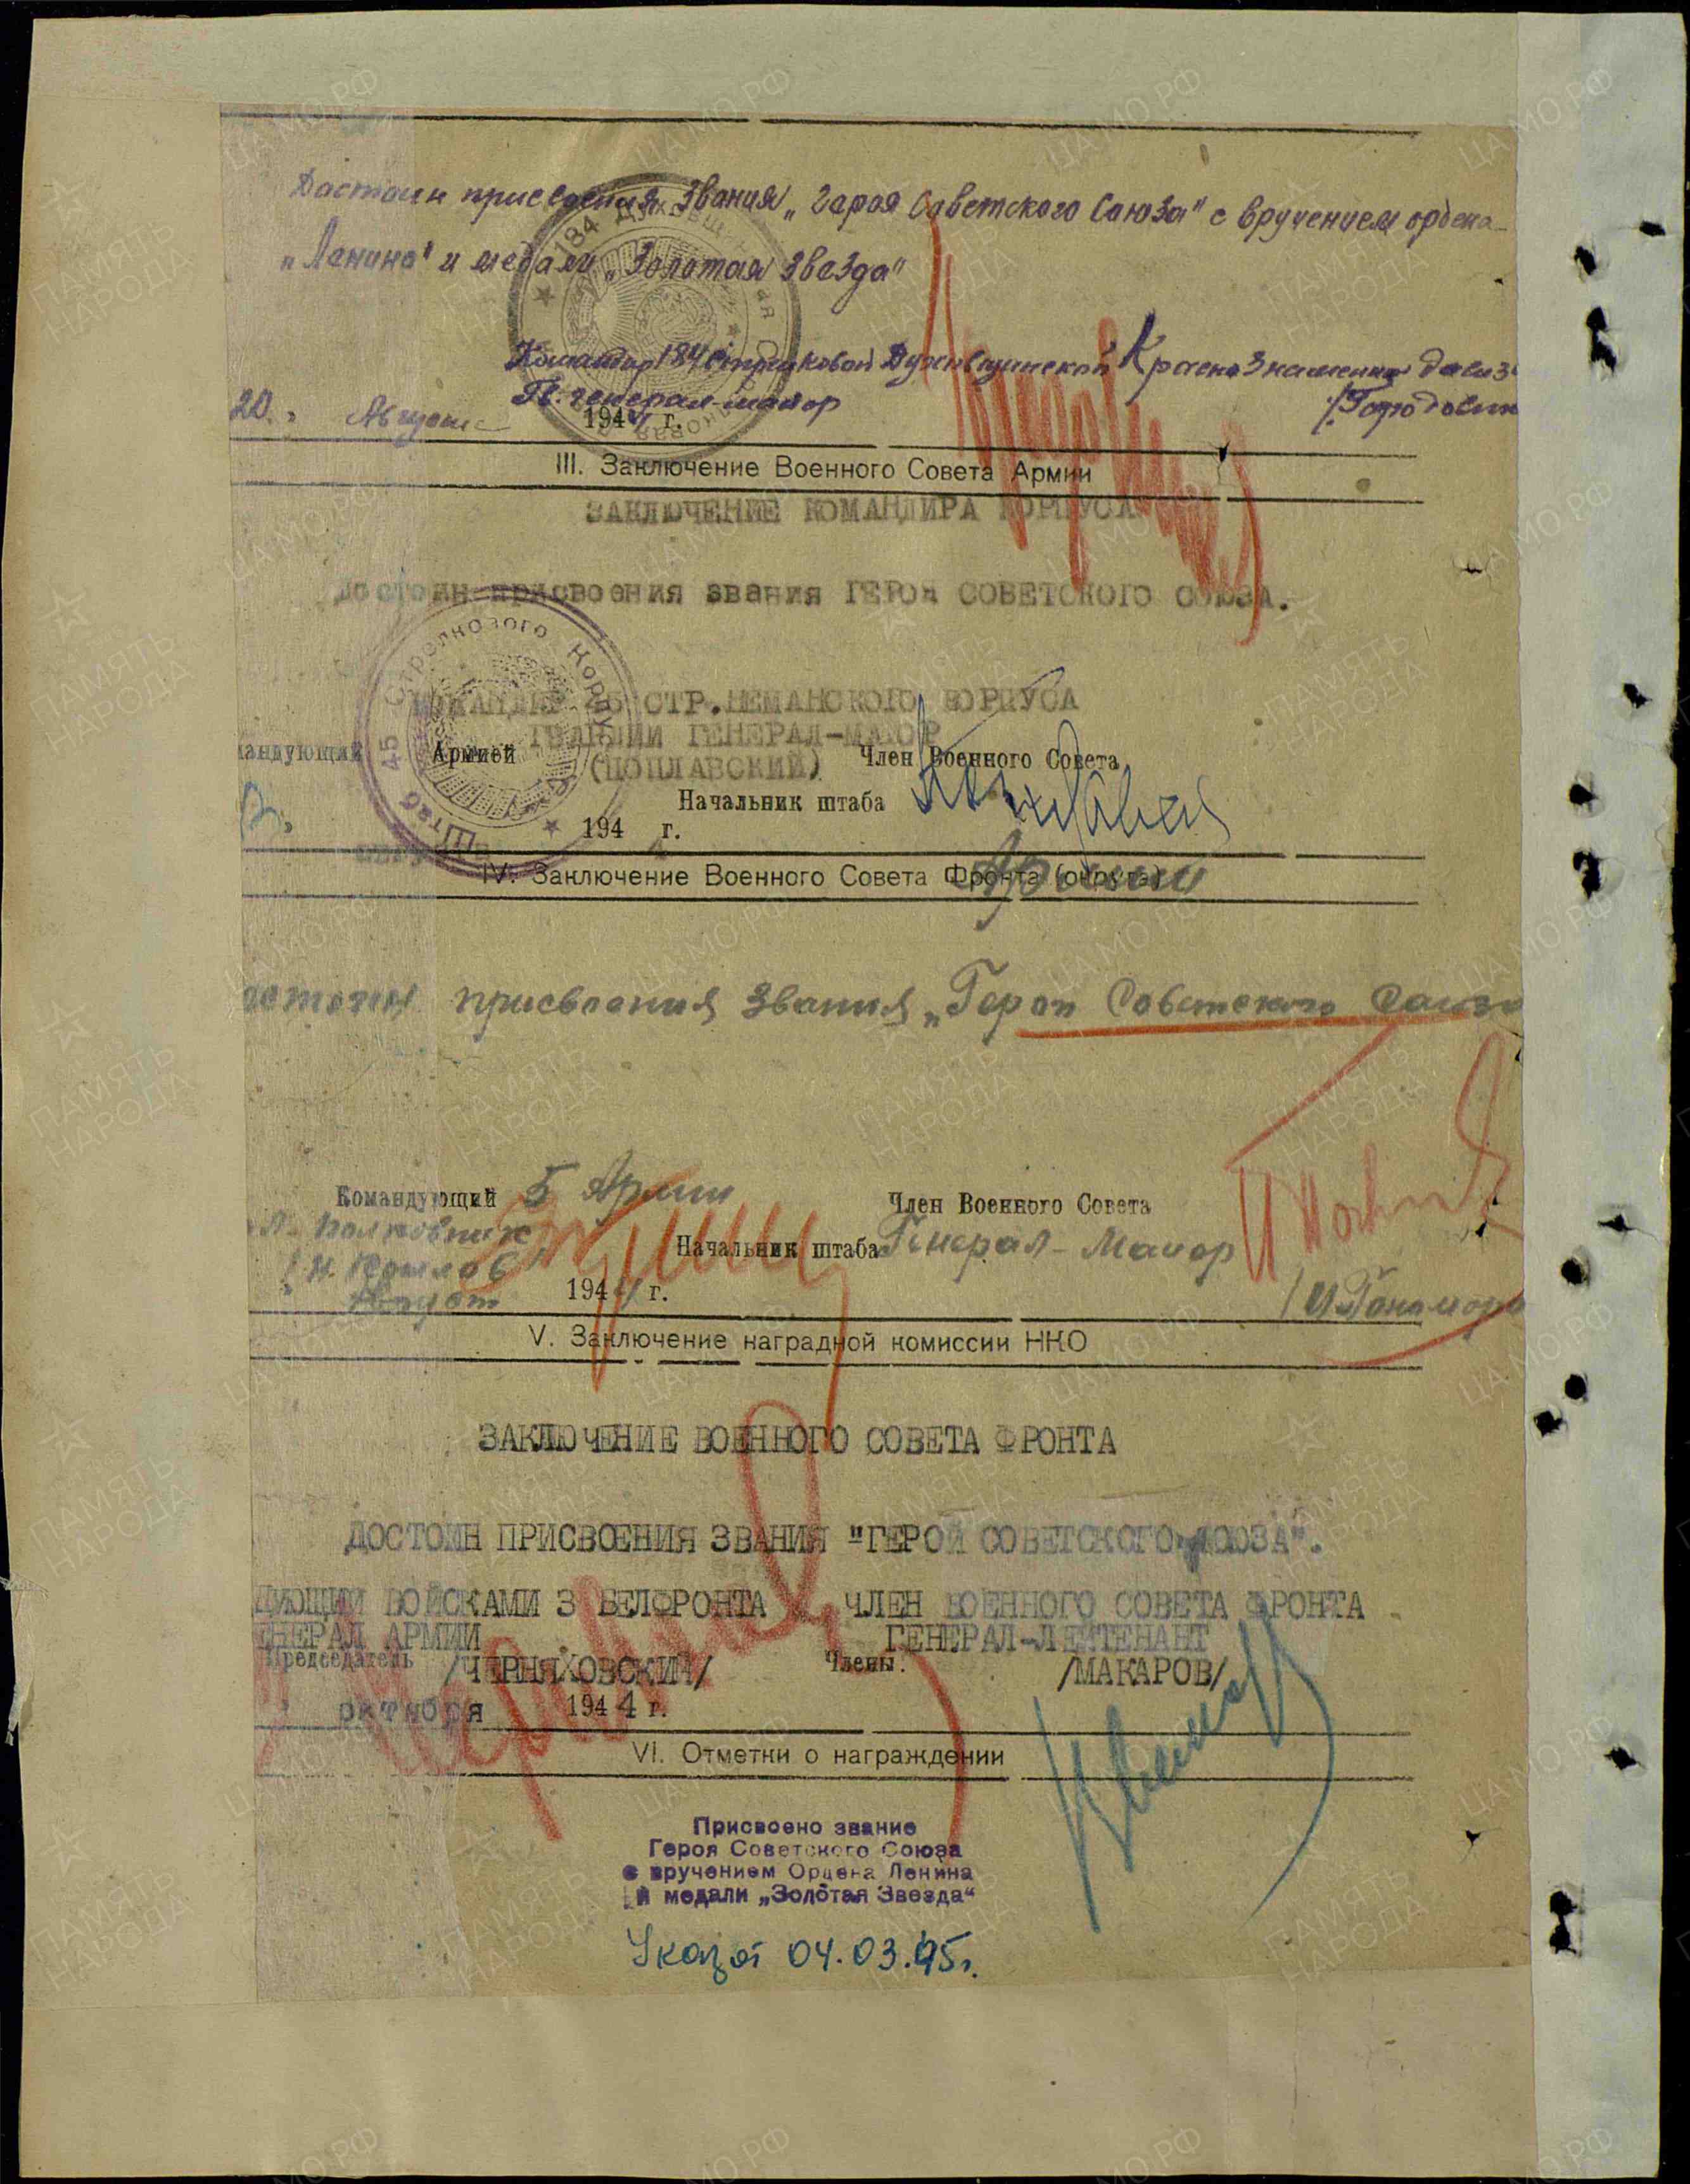 Достоин присвоения звания „Героя Советского Союза" с вручением ордена
„Ленина" и медали „Золотая Звезда"
Командир 184 стрелковой Духовщинской Краснознаменно дивиз
Гв. генерал-майор
20. Августа 1944 г.
III. Заключение Военного Совета Армии
ЗАКЛЮЧЕНИЕ КОМАНДИРА КОРПУСА
достоин присвоения звания ГЕРОЯ СОВЕТСКОГО СОЮЗА.
КОМАНДИР 45 СТР.НЕМАНСКОГО КОРПУСА
ГВАРДИИ ГЕНЕРАЛ-МАЙОР
мандующий Армией Член Военного Совета
(ПОПЛАВСКИЙ)
Начальник штаба
194 г.
Штаб 45 Стрелкового Корпуса
IV. Заключение Военного Совета Фронта (округа)
Армии
остоин присвоения звания „Героя Советского Союза
Командующий 5 Армии Член Военного Совета
Полковник Начальник штаба Генерал-Майор
/Н. Крылов
Август 1944 г.
V. Заключение наградной комиссии НКО
ЗАКЛЮЧЕНИЕ ВОЕННОГО СОВЕТА ФРОНТА
ДОСТОИН ПРИСВОЕНИЯ ЗВАНИЯ "ГЕРОЙ СОВЕТСКОГО СОЮЗА".
ДУЮЩИЙ ВОЙСКАМИ 3 БЕЛФРОНТА ЧЛЕН ВОЕННОГО СОВЕТА ФРОНТА
ЕНЕРАЛ АРМИИ ГЕНЕРАЛ-ЛЕЙТЕНАНТ
Председатель /ЧЕРНЯХОВСКИЙ/ Члены: /МАКАРОВ/
октября 1944 г.
VI. Отметки о награждении
Присвоено звание
Героя Советского Союза
с вручением Ордена Ленина
и медали „Золотая Звезда"
Указ от 04.03.45г.